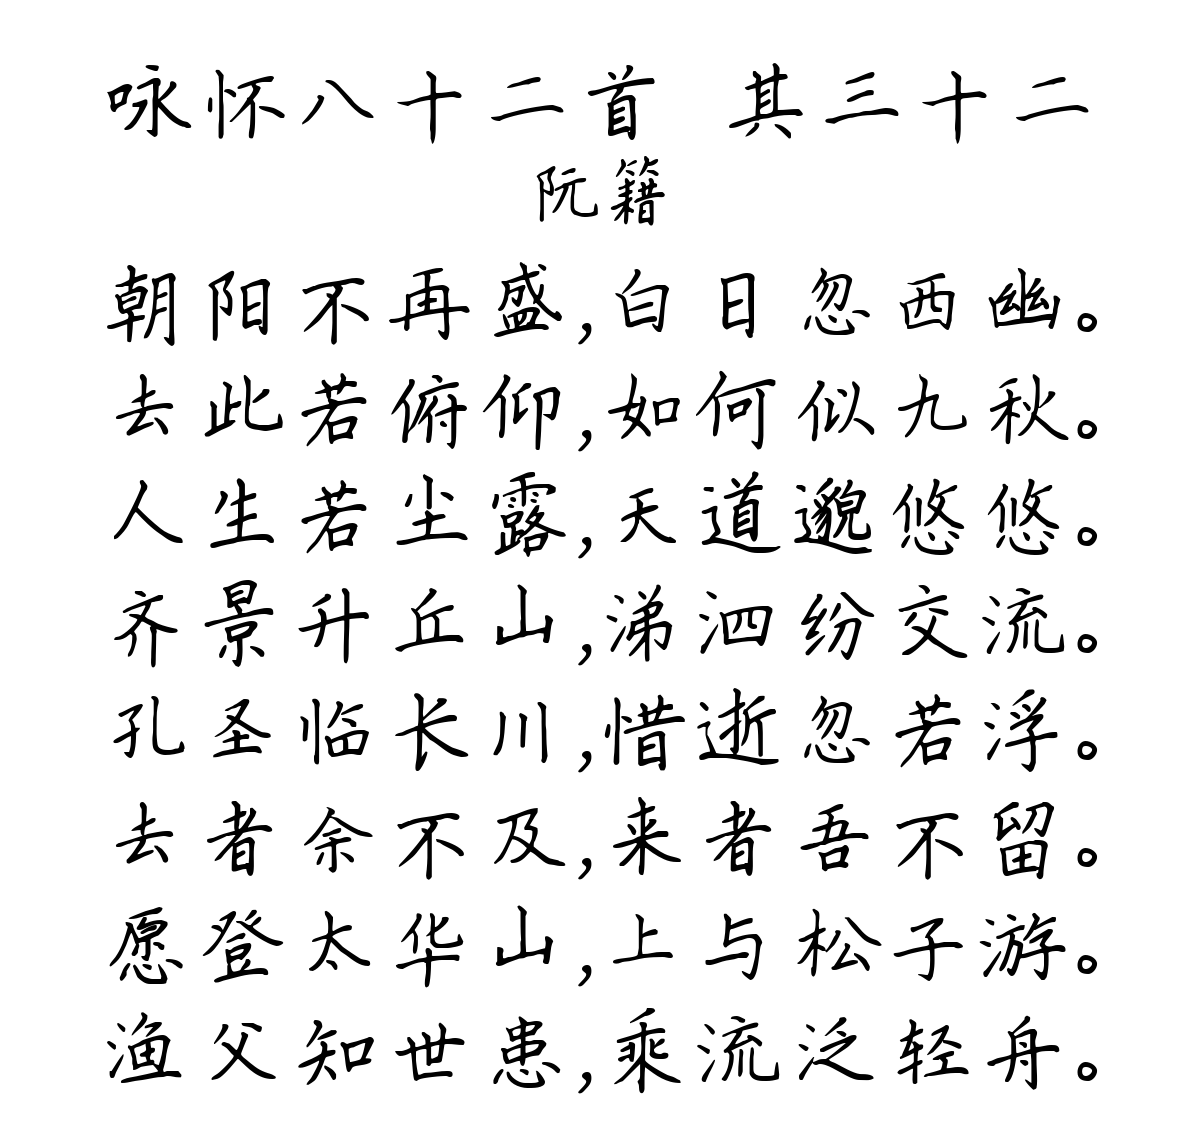 咏怀八十二首 其三十二
阮籍
朝阳不再盛,白日忽西幽。
去此若俯仰,如何似九秋。
人生若尘露,天道邈悠悠。
齐景升丘山,涕泗纷交流。
孔圣临长川,惜逝忽若浮。
去者余不及,来者吾不留。
愿登太华山,上与松子游。
渔父知世患,乘流泛轻舟。